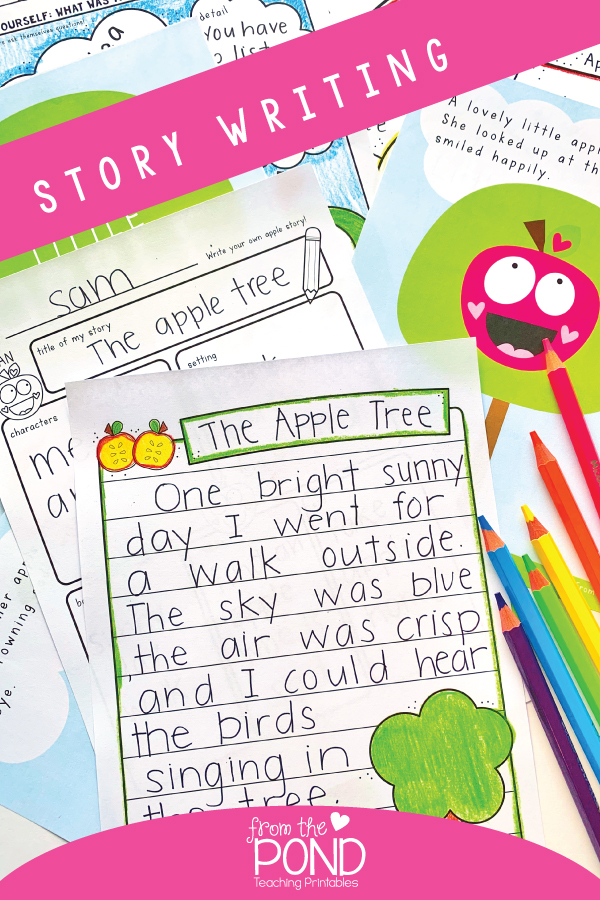 OURSELF: WHAT WAS
ask themselves questions!
detail
you have
STORY WRITING
A lovely little
She looked up at
smiled happily.
Write your own apple story!
sam
title of my story
The apple tree
setting
characters
The Apple Tree
One bright sunny
day I went for
a walk outside.
The sky was blue
the air was crisp
and I could hear
the birds
singing in
the tree.
from the
POND
Teaching Printables